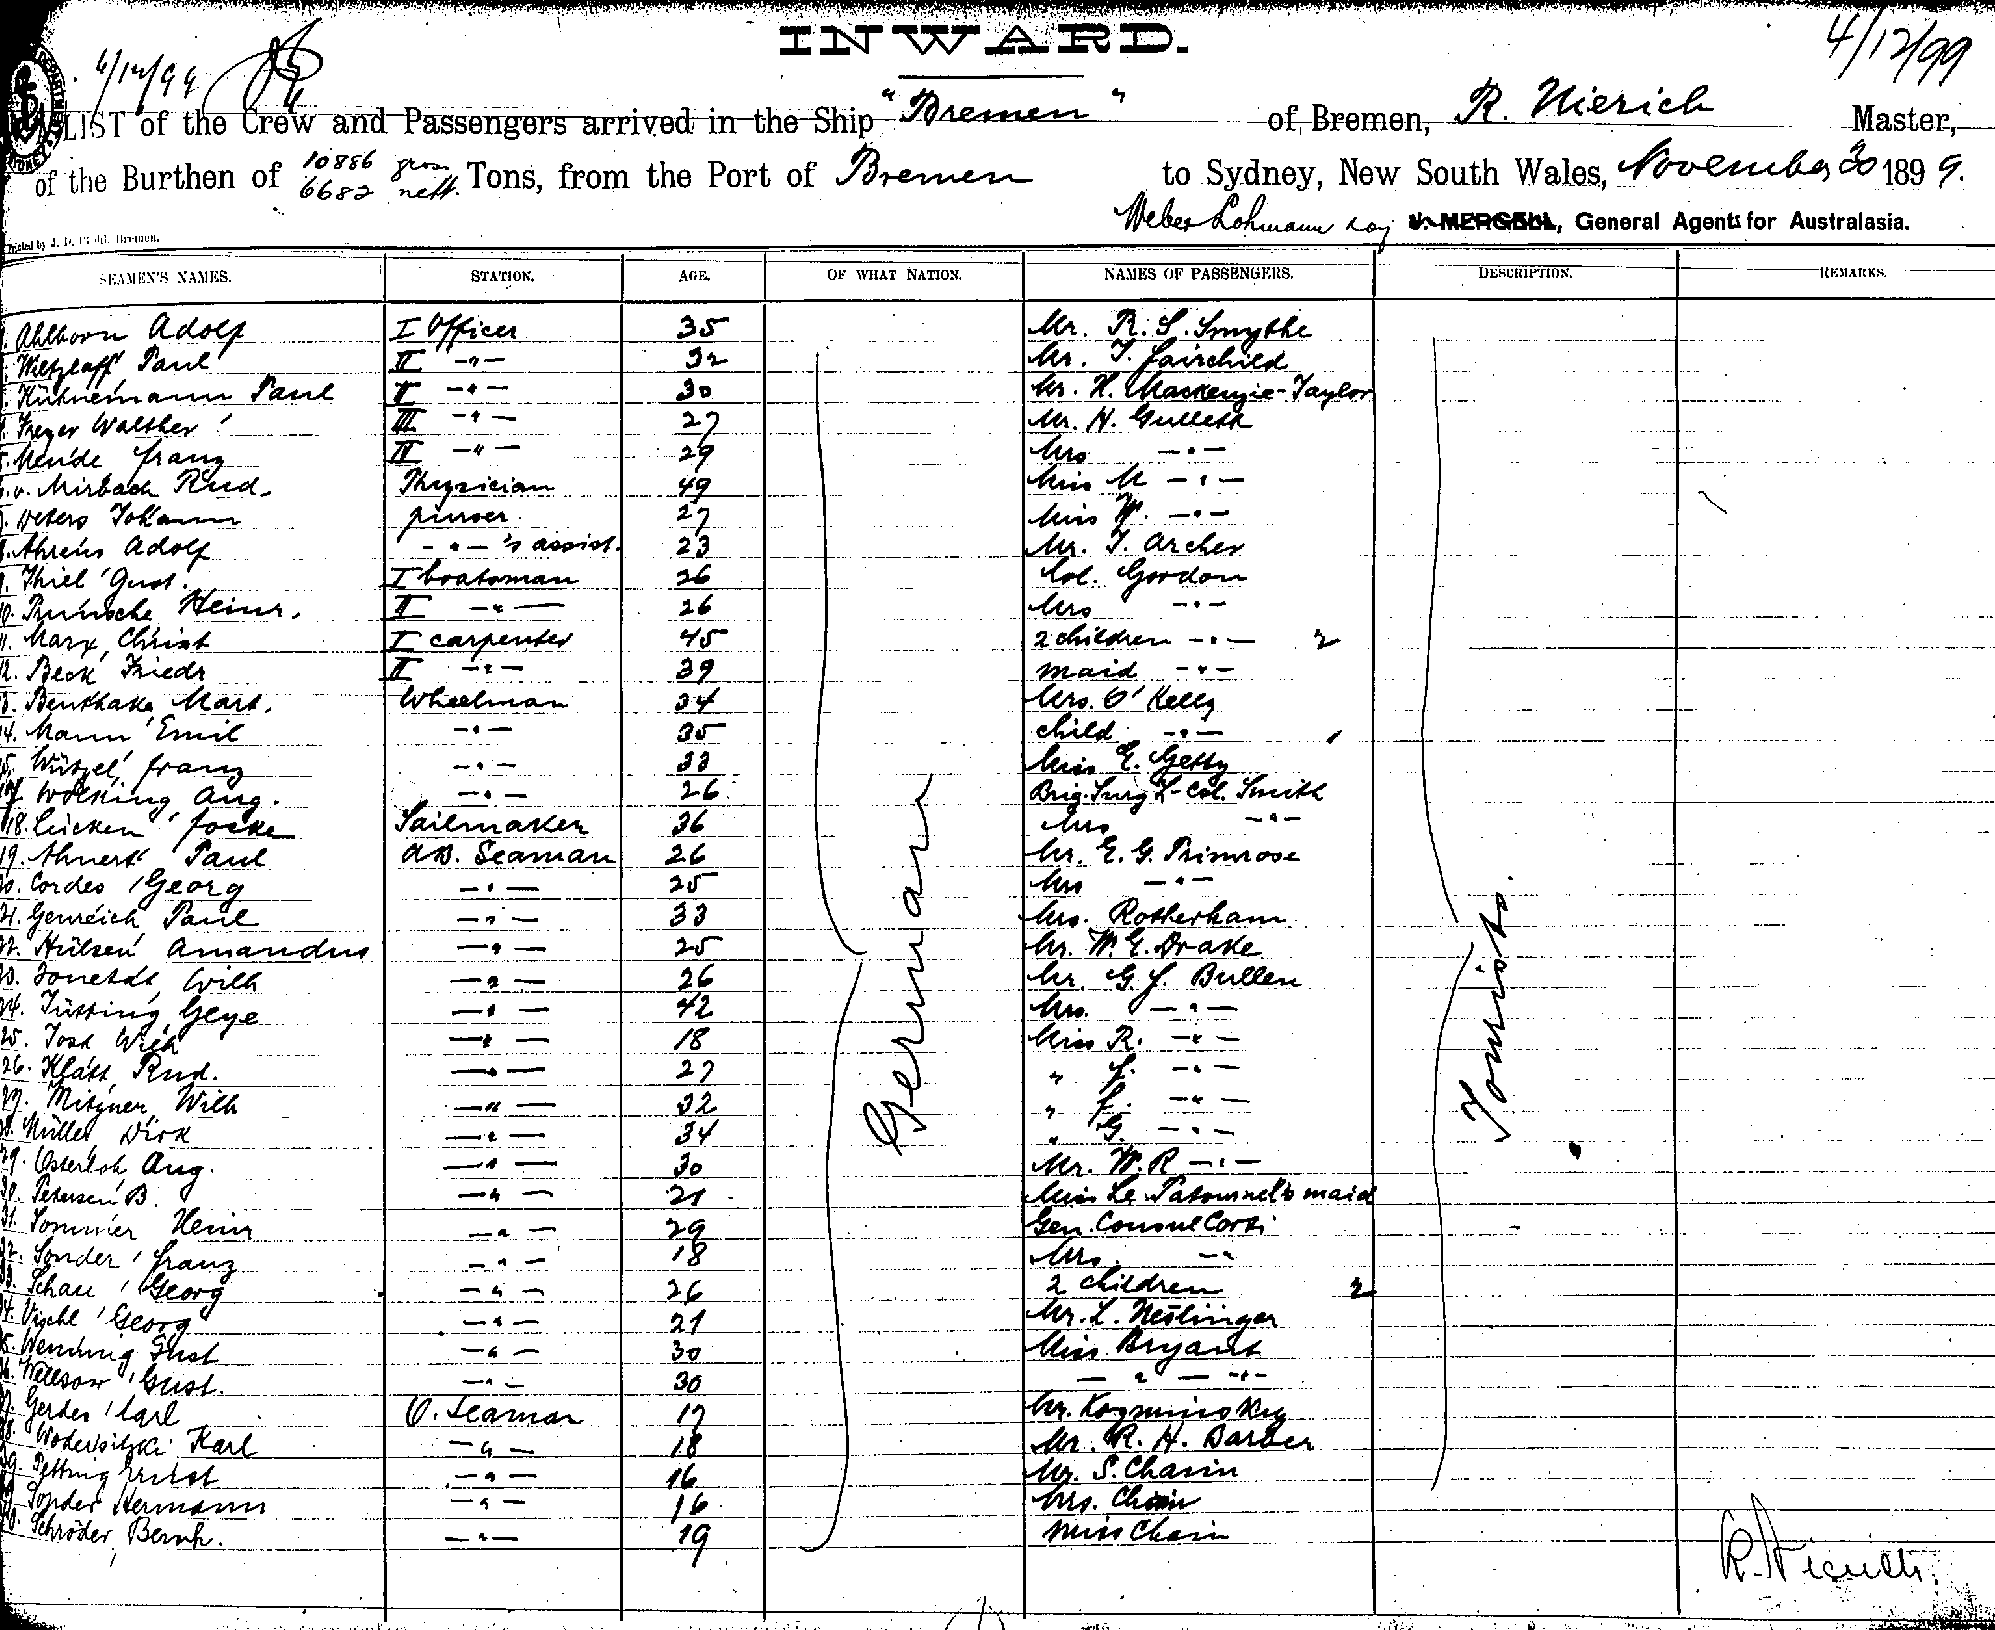 INWARD.
4/12/99
6/12/99
LIST of the Crew and Passengers arrived in the Ship "Bremen" of Bremen, R. Nierich Master,
of the Burthen of 10886 gross 6682 nett. Tons, from the Port of Bremen to Sydney, New South Wales, November 30 1899.
Weber Lohmann & Co, General Agents for Australasia.
SEAMEN'S NAMES. STATION. AGE. OF WHAT NATION. NAMES OF PASSENGERS. DESCRIPTION. REMARKS.
Ahlborn Adolf I Officer 35 Mr. R. S. Smythe
Paul II -"- 32 Mr. J. Fairchild
Kühnemann Paul II -"- 30 Mr. H. Mackenzie-Taylor
Walther III -"- 27 Mr. H. Gullett
Mende Franz II -"- 29 Mrs -"-
v. Mirbach Rud. Physician 49 Miss M -"-
Peters Johann purser 27 Miss W. -"-
Ahrens Adolf -"-'s assist. 23 Mr. J. Archer
9. Thiel Gust. I boatsman 26 Col. Gordon
10. Heinr. II -"- 26 Mrs -"-
11. Marx, Christ I carpenter 45 2 children -"- 2
12. Beck Friedr II -"- 39 maid -"-
13. Benthake Mart. Wheelman 34 Mrs. O'Kelly
14. Mann Emil -"- 35 child -"- 1
15. Würzel, Franz -"- 33 Miss E. Getty
17. Wölking Aug. -"- 26 Brig. Surg. Lt-Col. Smith
18. Lücken Focke Sailmaker 36 Mrs -"-
19. Ahnert Paul AB. Seaman 26 Mr. E. G. Primrose
20. Cordes Georg -"- 25 Mrs -"-
21. Genreich, Paul -"- 33 Mrs. Rotherham
22. Hülsen Amandus -"- 25 Mr. W. E. Drake
23. Wilh -"- 26 Mr. G. F. Bullen
24. Jütting Geye -"- 42 Mrs. -"-
25. Jost Wilh -"- 18 Miss R. -"-
26. Klatt, Rud. -"- 27 " -"-
27. Mitzner, Wilh -"- 32 " -"-
28. Müller, Dirk -"- 34 " G. -"-
29. Osterloh Aug. -"- 30 Mr. W. R -"-
30. Petersen B. -"- 21 Miss Le Patournel's maid
31. Sommer Heinr -"- 29 Gen. Consul Corti
32. Sonder Franz -"- 18 Mrs. -"-
33. Schau Georg -"- 26 2 children 2
34. Georg -"- 21 Mr. L. Neslinger
35. Wenning Gust -"- 30 Miss Bryant
36. Gust. -"- 30 -"- -"-
37. Gerdes Carl O. Seaman 17 Mr. Kozminsky
38. Karl -"- 18 Mr. R. H. Barber
39. -"- 16 Mr. S. Chasin
Sonder Hermann -"- 16 Mrs. Chasin
40. Schröder, Bernh. -"- 19 Miss Chasin
German
Tourists.
R. Nierich.